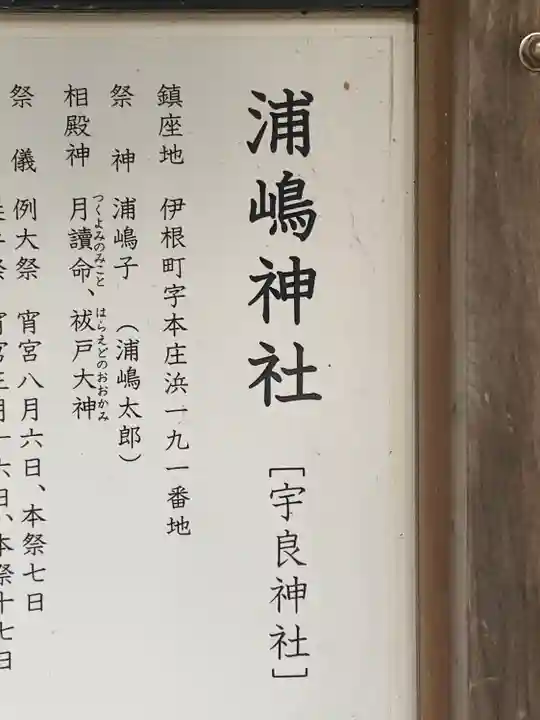 浦嶋神社 [宇良神社]
鎮座地 伊根町字本庄浜一九一番地
祭神 浦嶋子 (浦嶋太郎)
相殿神 月讀命、祓戸大神
つくよみのみこと はらえどのおおかみ
祭儀 例大祭 宵宮八月六日、本祭七日
祭 宵宮三月十六日、本祭十七日